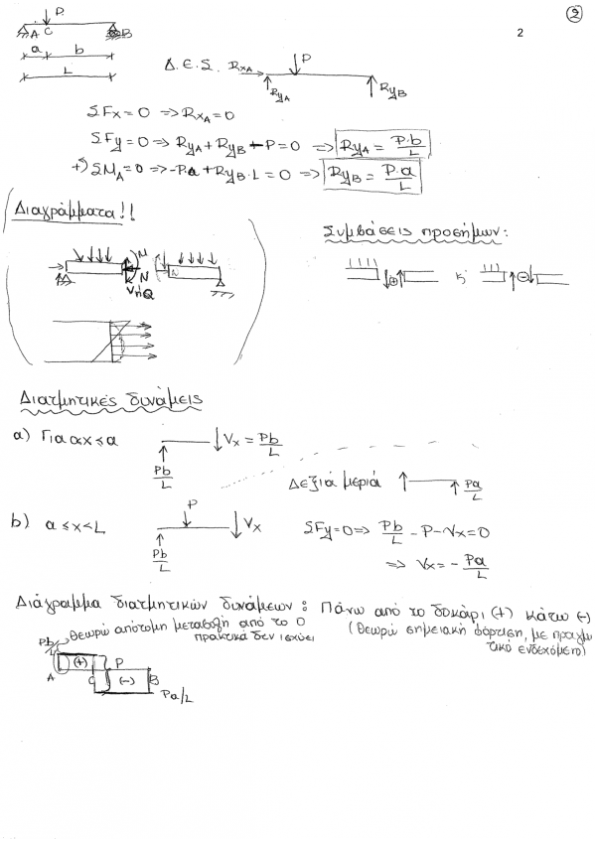 2
2
P
A C B
a b
L
Δ.Ε.S. RxA P RyA RyB
ΣFx = 0 => RxA = 0
ΣFy = 0 => RyA + RyB - P = 0 => RyA = P.b/L
+) ΣMA = 0 => -P.a + RyB.L = 0 => RyB = P.a/L
Διαγράμματα!!
Συμβάσεις προσήμων:
N N
V ή Q
⊕ ή ⊖
Διατμητικές δυνάμεις
a) Για αx≤a Vx = Pb/L
Pb/L
Δεξιά μεριά Pa/L
b) a ≤x<L P Vx ΣFy=0 => Pb/L - P - Vx = 0
Pb/L
=> Vx = - Pa/L
Διάγραμμα διατμητικών δυνάμεων: Πάνω από το δοκάρι (+) κάτω (-)
Pb/L Θεωρώ απότομη μεταβολή από το 0 (Θεωρώ σημειακή φόρτιση, με πραγμα
πρακτικά δεν ισχύει τικό ενδεχόμενο)
(+) P
A C (-) B
Pa/L